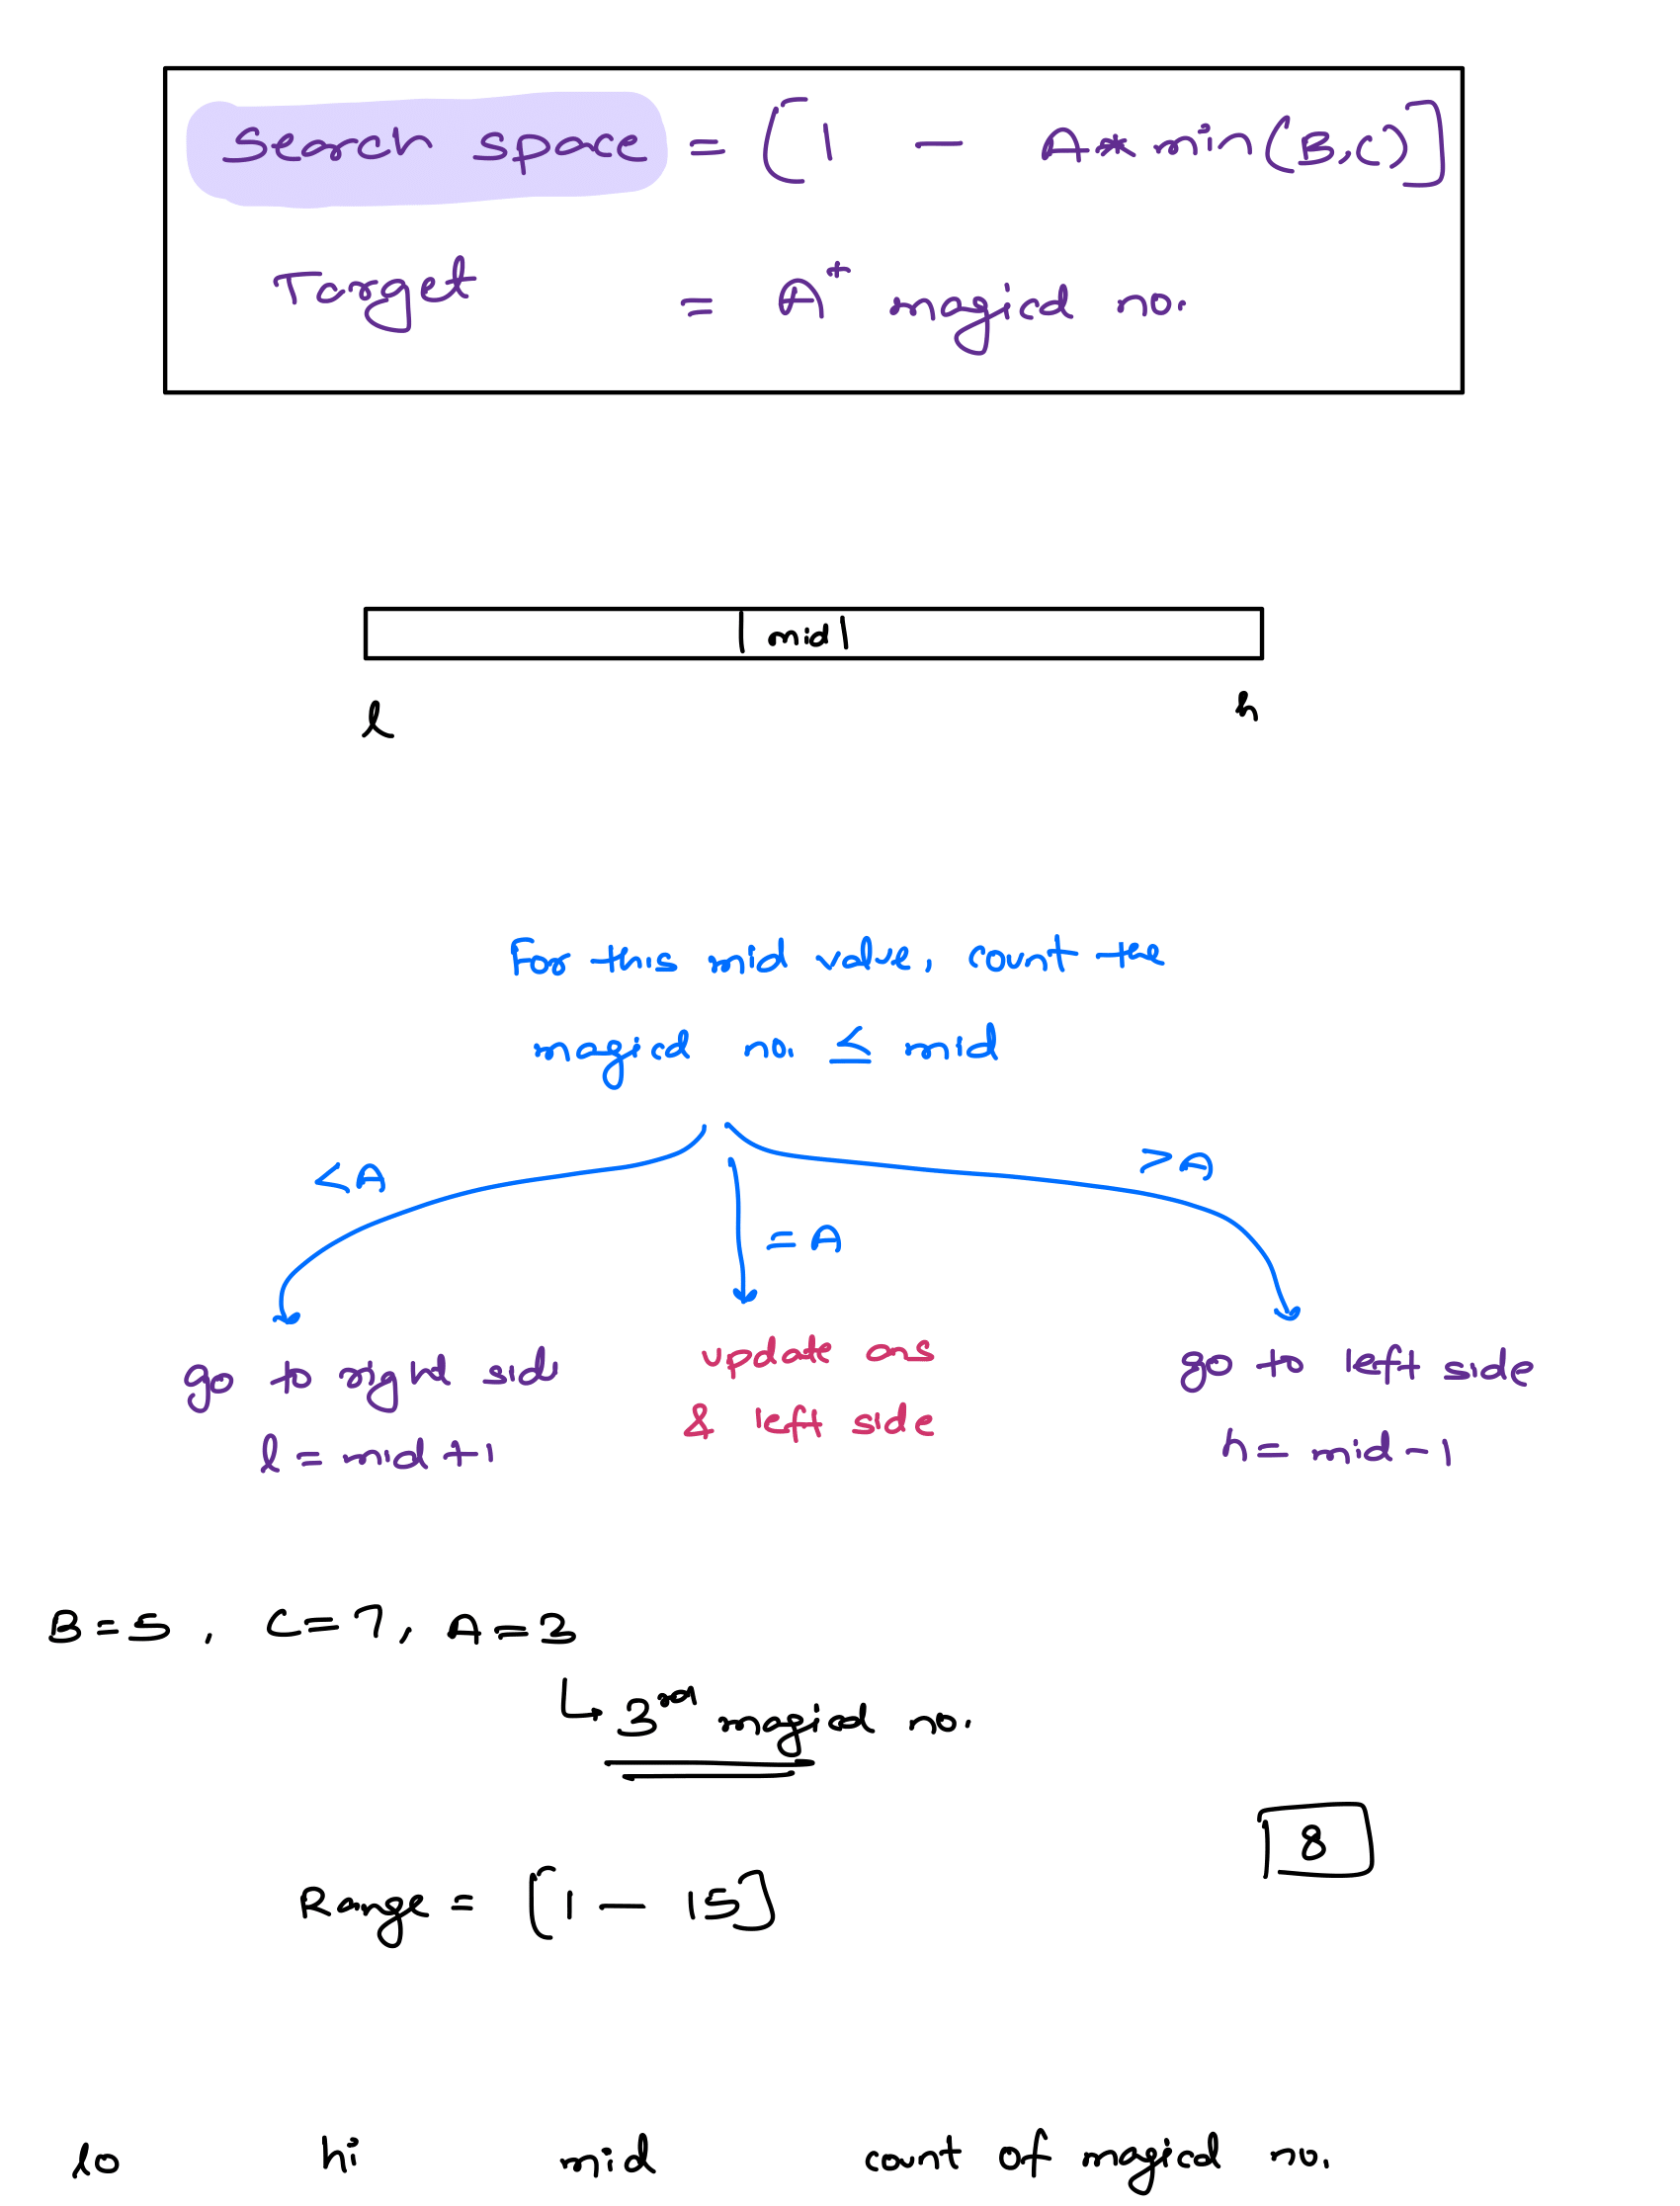 Search space = [1 - A * min(B,C)]
Target = A+ magical no.
mid
l h
For this mid value, count the
magical no. ≤ mid
<A = A >A
go to right sid update ans go to left side
l = mid + 1 & left side h = mid - 1
B = 5 , C = 7, A = 3
↳ 3rd magical no.
8
Range = [1 - 15]
lo hi mid count of magical no.